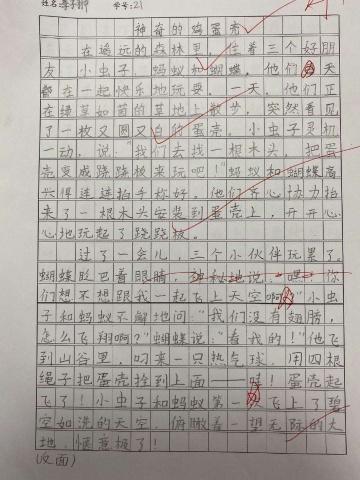 姓名:李子聊 学号:21
神奇的鸡蛋壳
在遥远的森林里,住着三个好朋
友,小虫子、蚂蚁和蝴蝶,他们天
都在一起快乐地玩耍。一天,他们正
在绿草如茵的草地上散步,突然看见
了一枚又圆又白的蛋壳。小虫子灵机
一动,说:“我们去找一根木头,把蛋
壳变成跷跷板来玩吧!”蚂蚁和蝴蝶高
兴得连连拍手称好。他们齐心协力抬
来了一根木头安装到蛋壳上,开开心
心地玩起了跷跷板。
过了一会儿,三个小伙伴玩累了。
蝴蝶眨巴着眼睛,神秘地说:“嘿!你
们想不想跟我一起飞上天空啊?”小虫
子和蚂蚁不解地问:“我们没有翅膀,
怎么飞翔啊?”蝴蝶说:“看我的!”他飞
到山谷里,叼来一只热气球,用四根
绳子把蛋壳拴到上面——哇!蛋壳起
飞了!小虫子和蚂蚁第一次飞上了碧
空如洗的天空,俯瞰着一望无际的大
地,惬意极了!
(反面)